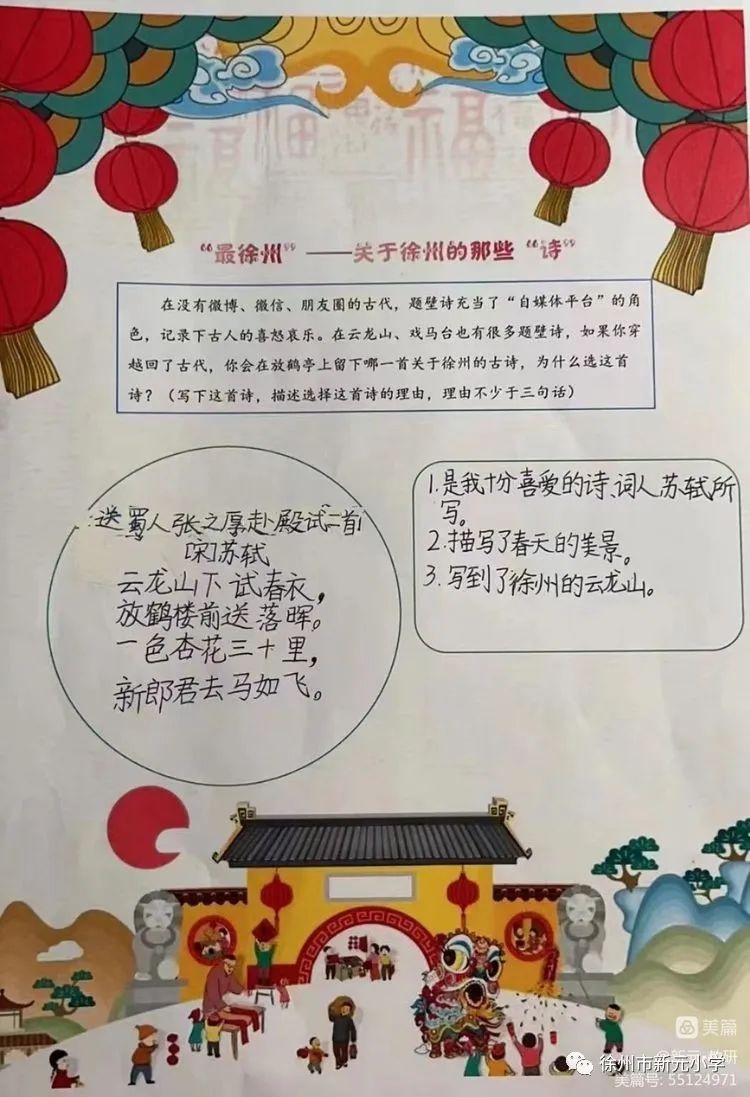 福
福
“最徐州” ——关于徐州的那些“诗”
在没有微博、微信、朋友圈的古代，题壁诗充当了“自媒体平台”的角
色，记录下古人的喜怒哀乐。在云龙山、戏马台也有很多题壁诗，如果你穿
越回了古代，你会在放鹤亭上留下哪一首关于徐州的古诗，为什么选这首
诗？（写下这首诗，描述选择这首诗的理由，理由不少于三句话）
送蜀人张之厚赴殿试二首
[宋]苏轼
云龙山下试春衣，
放鹤楼前送落晖。
一色杏花三十里，
新郎君去马如飞。
1.是我十分喜爱的诗、词人苏轼所
写。
2.描写了春天的美景。
3.写到了徐州的云龙山。
美篇
徐州市新元小学
美篇号: 55124971